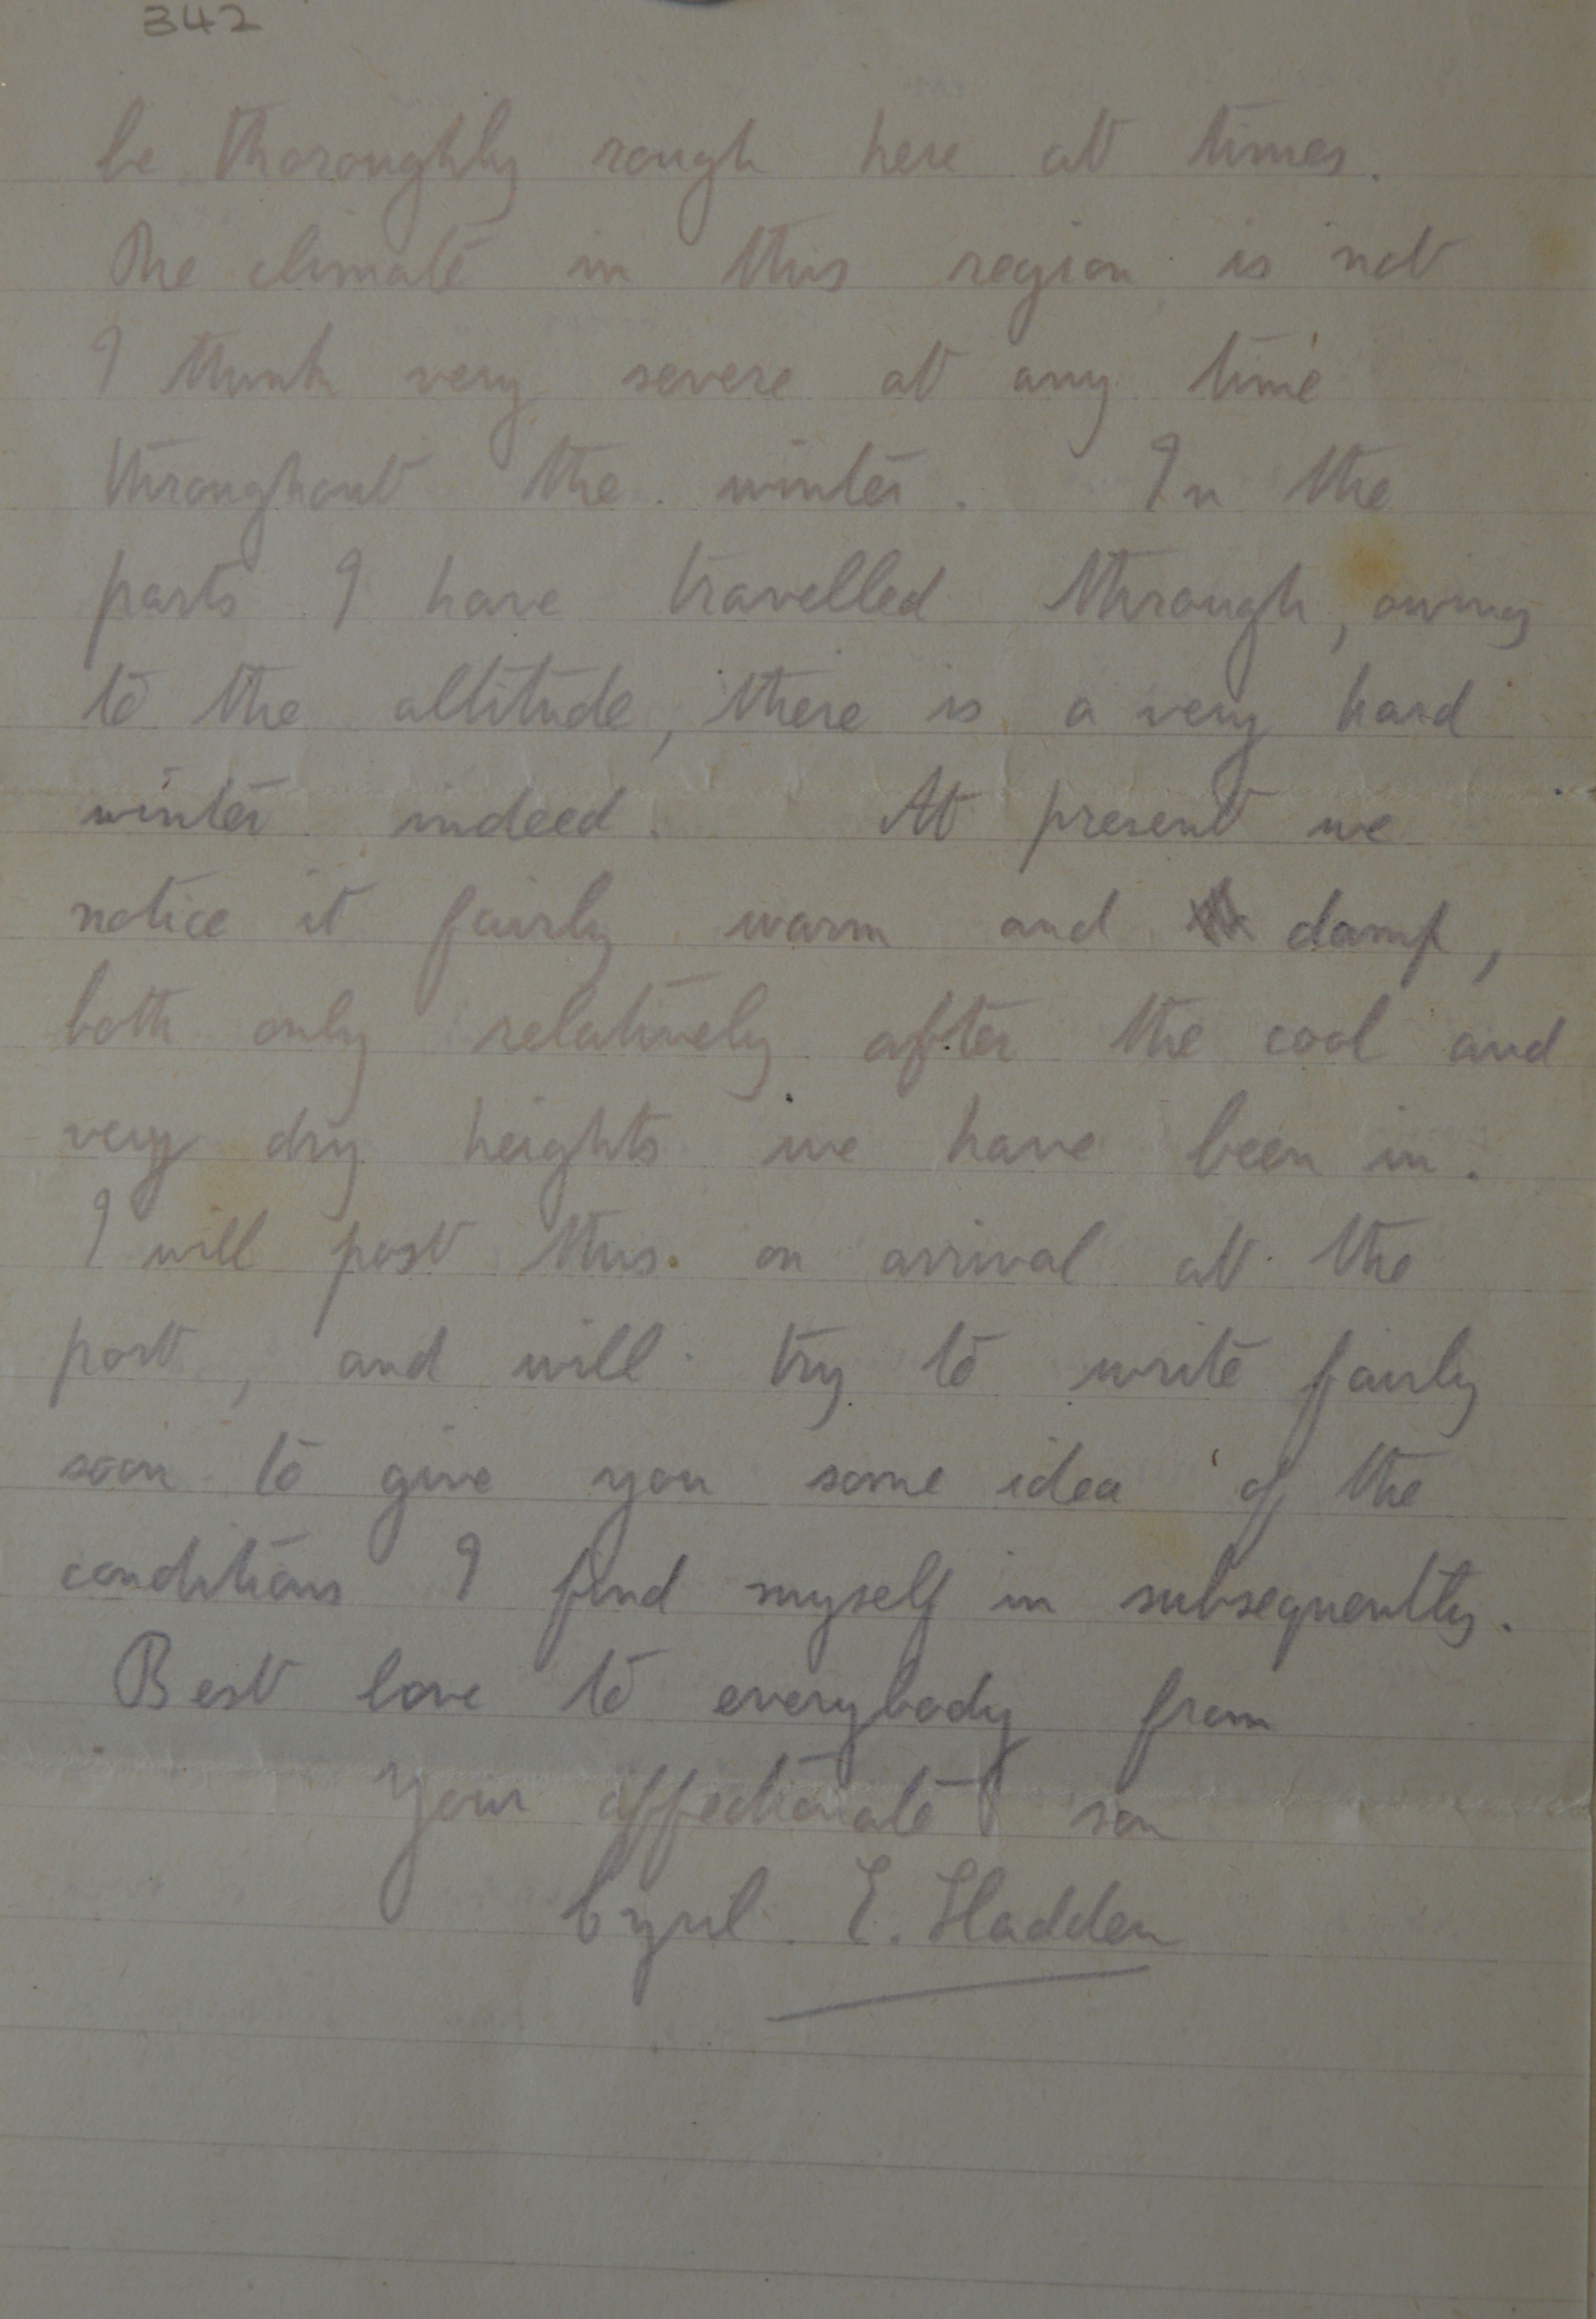 342
be thoroughly rough here at times.
The climate in this region is not
I think very severe at any time
throughout the winter. In the
parts I have travelled through, owing
to the altitude, there is a very hard
winter indeed. At present we
notice it fairly warm and damp,
both only relatively after the cool and
very dry heights we have been in.
I will post this on arrival at the
port, and will try to write fairly
soon to give you some idea of the
conditions I find myself in subsequently.
Best love to everybody from
Your affectionate son
Cyril E. Hadden